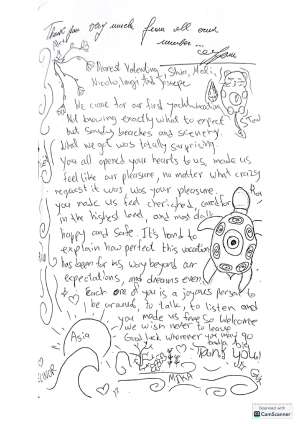 Thank you very much from all our
number...
Dearest Valentina, Shin, Meli,
Nicolo, Luigi and Giuseppe
We came for our first yacht vacation
Not knowing exactly what to expect
but sandy beaches and scenery.
What we got was totally surprising
You all opened your hearts to us, made us
feel like our pleasure, no matter what crazy
request it was, was your pleasure.
you made us feel cherished, cared for
in the highest level, and most of all
happy and safe. It's hard to
explain how perfect this vacation
has been for us, way beyond our
expectations, and dreams even.
Each one of you is a joyous person to
be around, to talk, to listen and
you made us feel so welcome
we wish never to leave
Good luck wherever you may go
Thank you!
Asia
MIKA